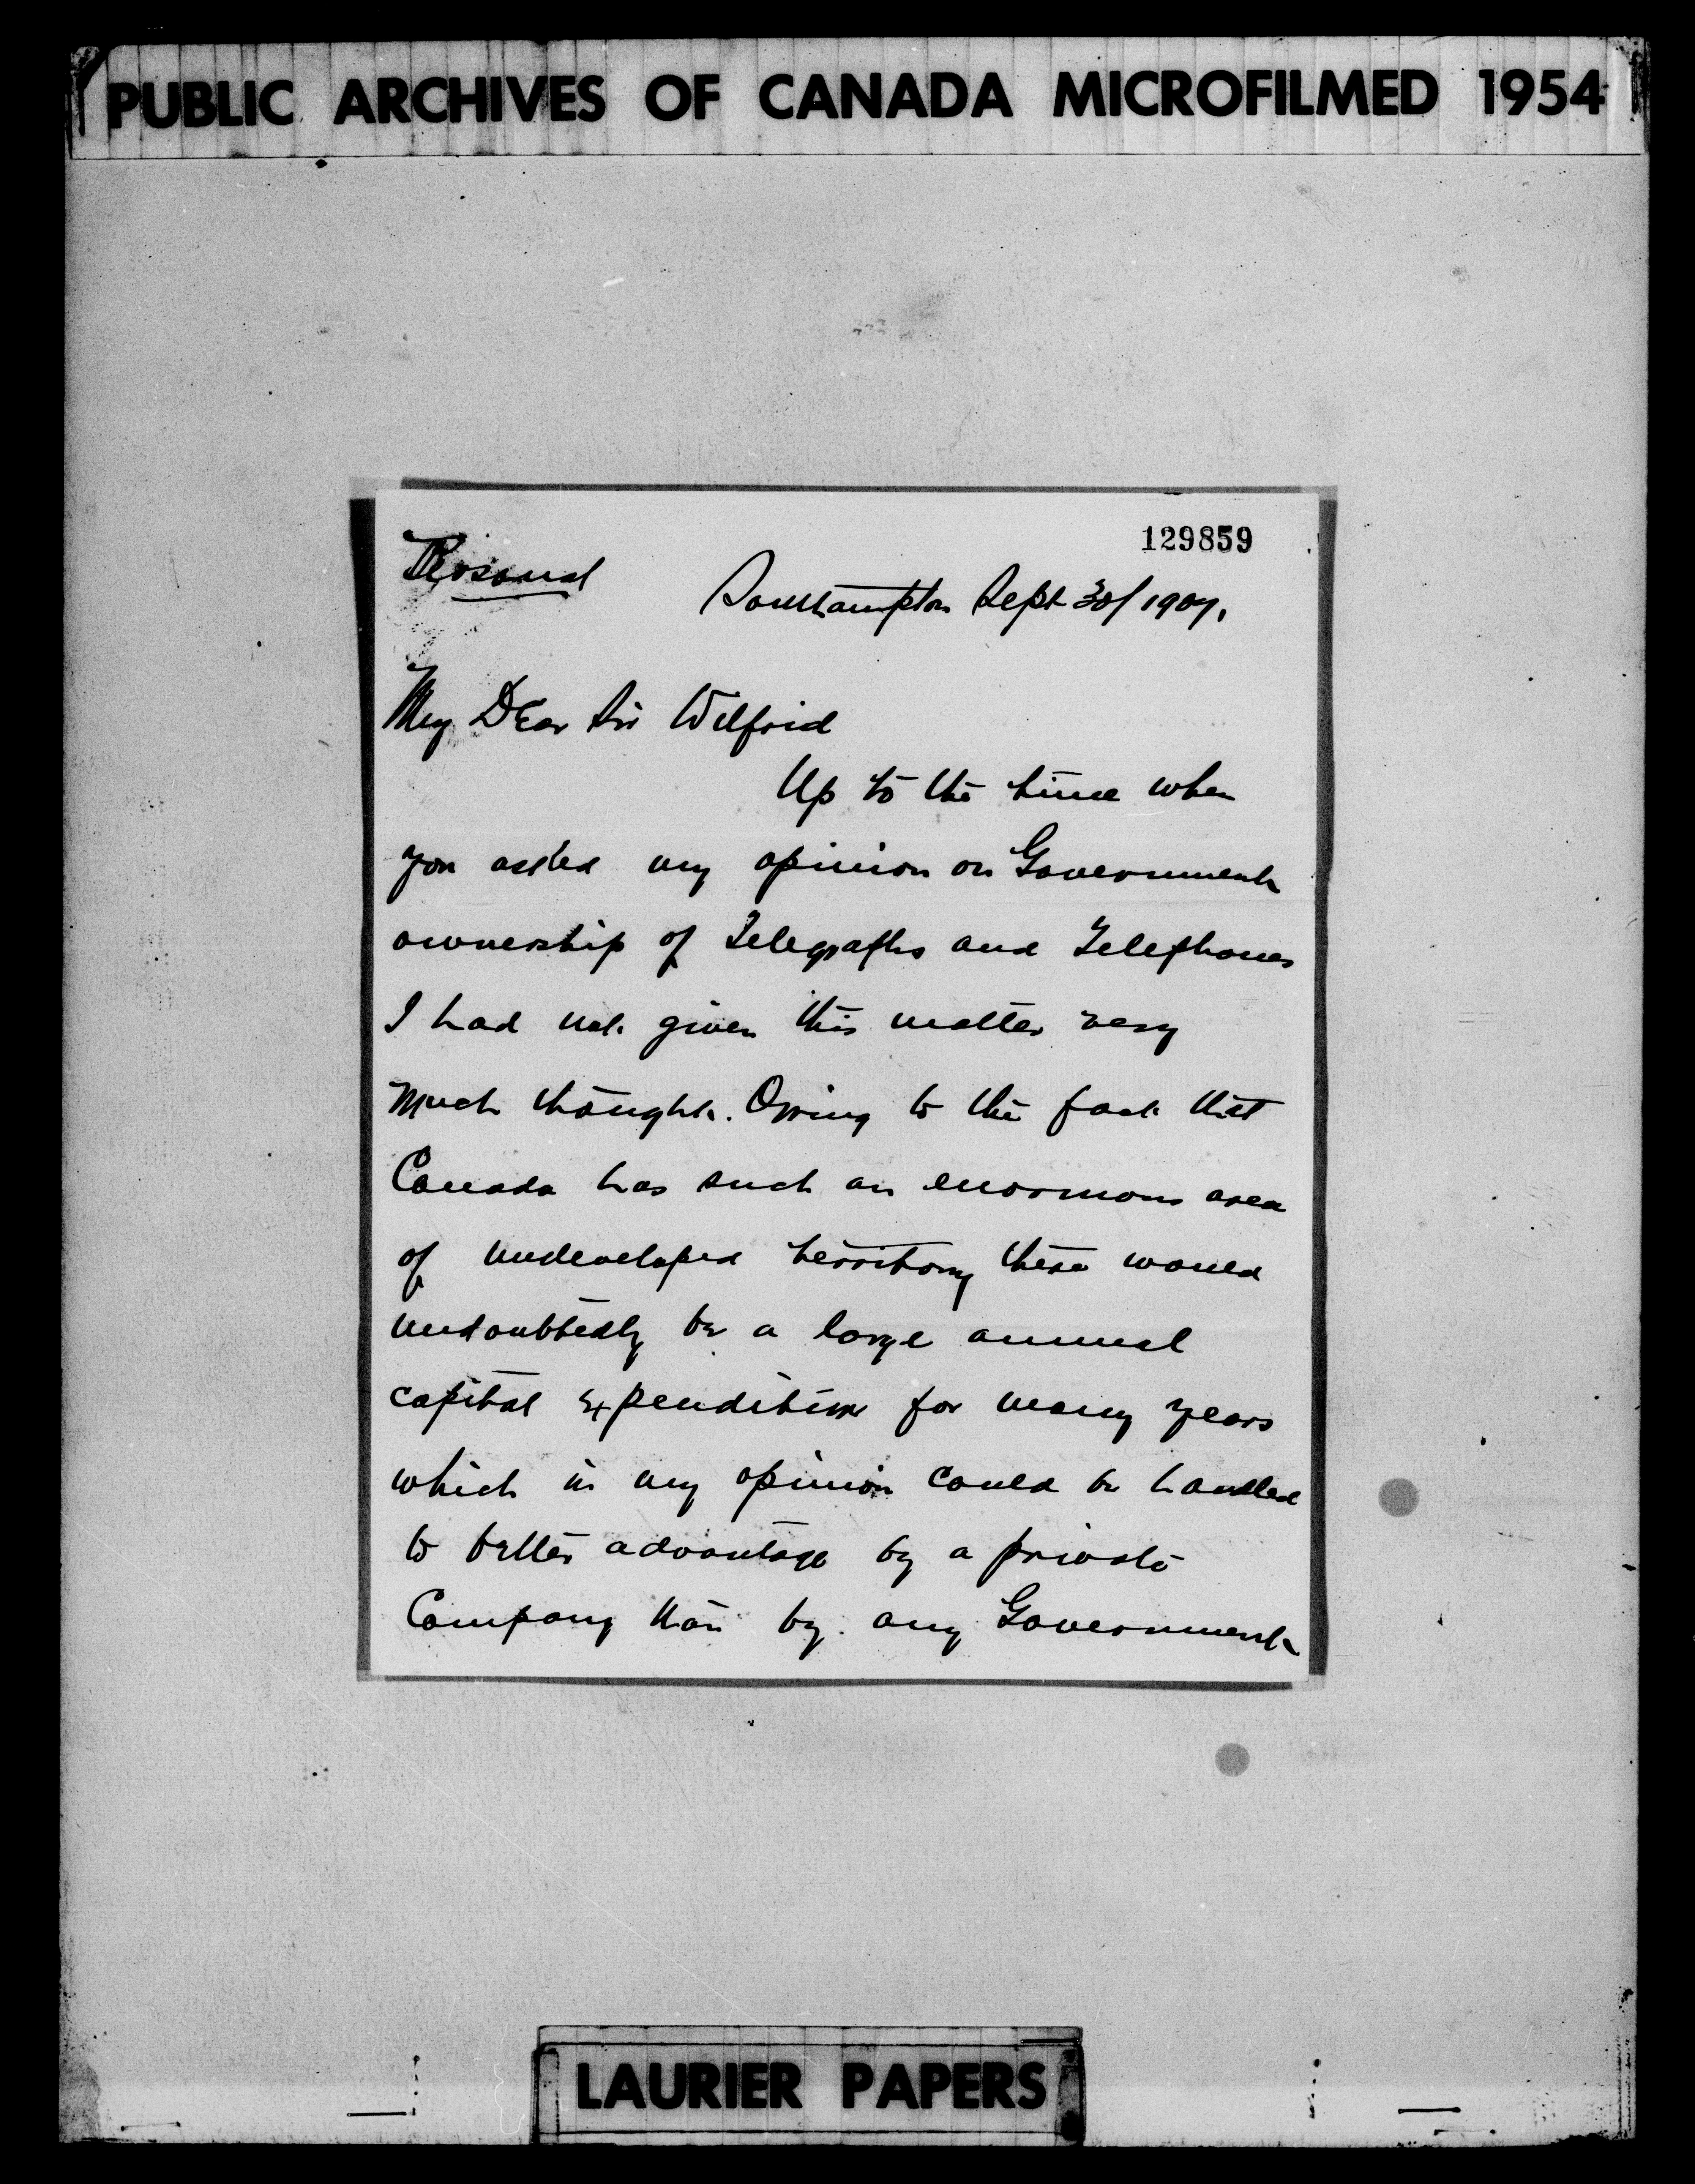 PUBLIC ARCHIVES OF CANADA MICROFILMED 1954
129859
Personal
Southampton Sept 30/1907.
My Dear Sir Wilfrid
Up to the time when
you asked my opinion on Government
ownership of Telegraphs and Telephones
I had not given this matter very
much thought. Owing to the fact that
Canada has such an enormous area
of undeveloped territory there would
undoubtedly be a large annual
capital expenditure for many years
which in my opinion could be handled
to better advantage by a private
Company than by any Government
LAURIER PAPERS